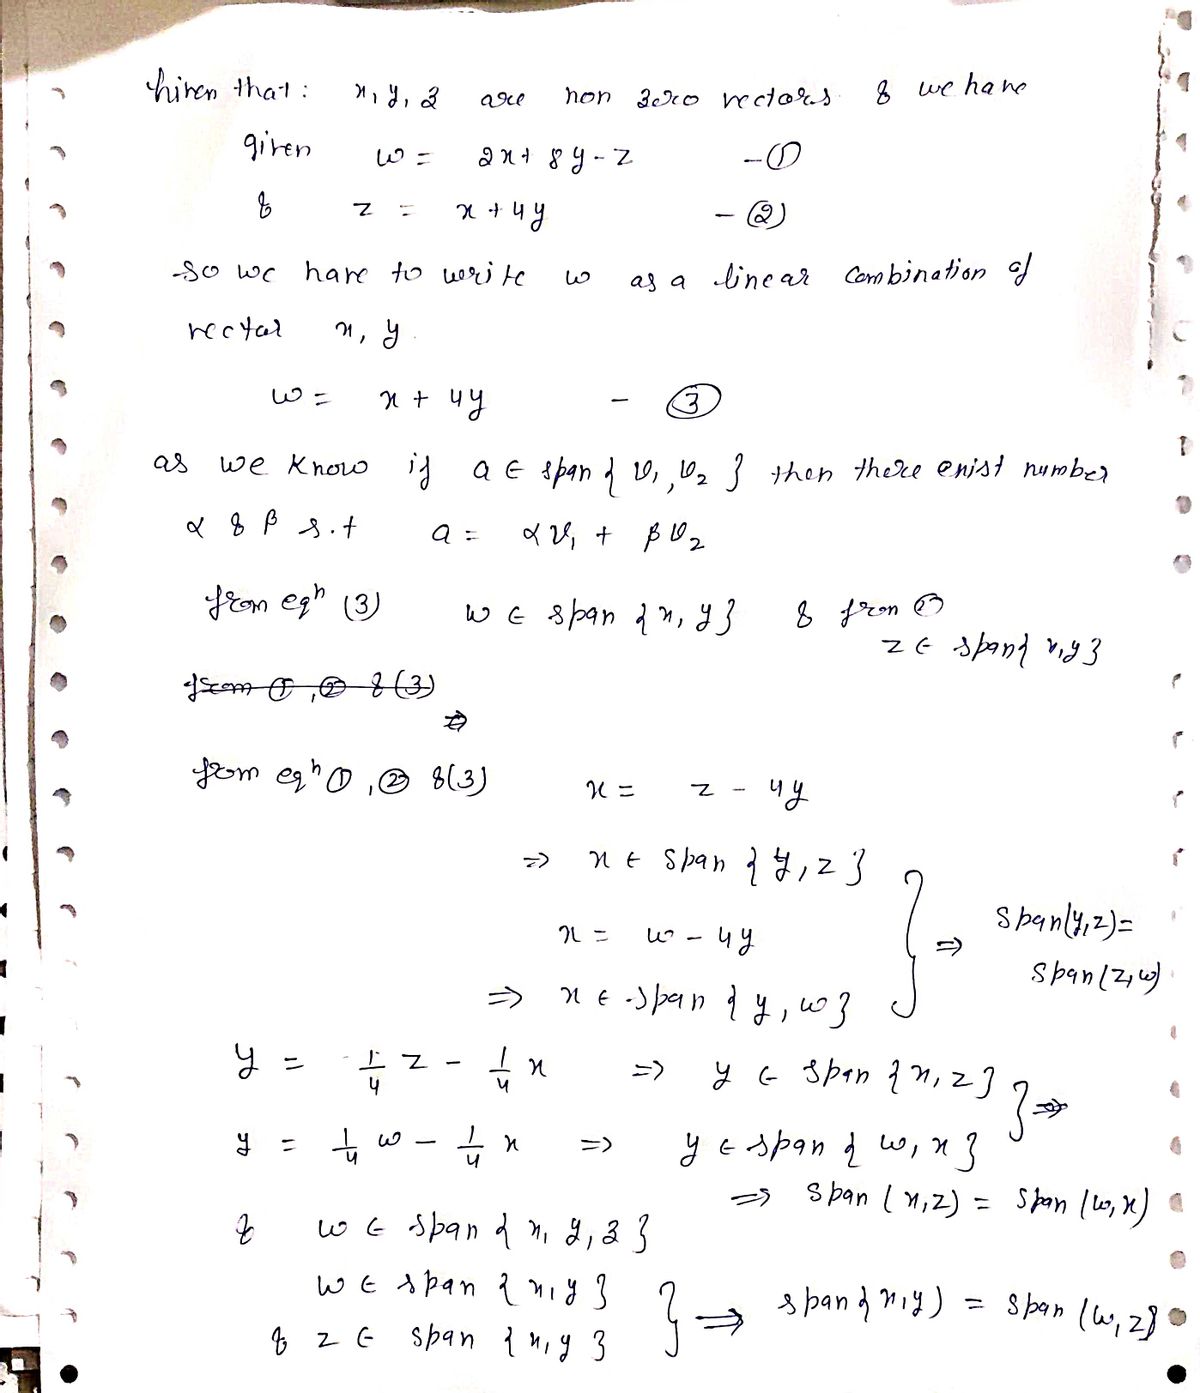 Given that: x, y, z are non zero vectors & we have
given w = 2x + 8y - z - ①
& z = x + 4y - ②
So we have to write w as a linear combination of
vector x, y.
w = x + 4y - ③
as we know if a ∈ span { v₁, v₂ } then there exist number
α & β s.t a = αv₁ + βv₂
from eqⁿ (3) w ∈ span {x, y} & from ②
z ∈ span{x,y}
from ①, ② & (3)
⇒
from eqⁿ ①, ② &(3) x = z - 4y
⇒ x ∈ span {y, z}
x = w - 4y
⇒ x ∈ span {y, w}
} ⇒ span(y,z) =
span(z,w)
y = 1/4 z - 1/4 x ⇒ y ∈ span {x, z}
y = 1/4 w - 1/4 x ⇒ y ∈ span {w, x} } ⇒
⇒ span (x,z) = span (w,x)
& w ∈ span {x, y, z}
w ∈ span {x, y}
& z ∈ span {x, y} } ⇒ span{x,y) = span (w,z}